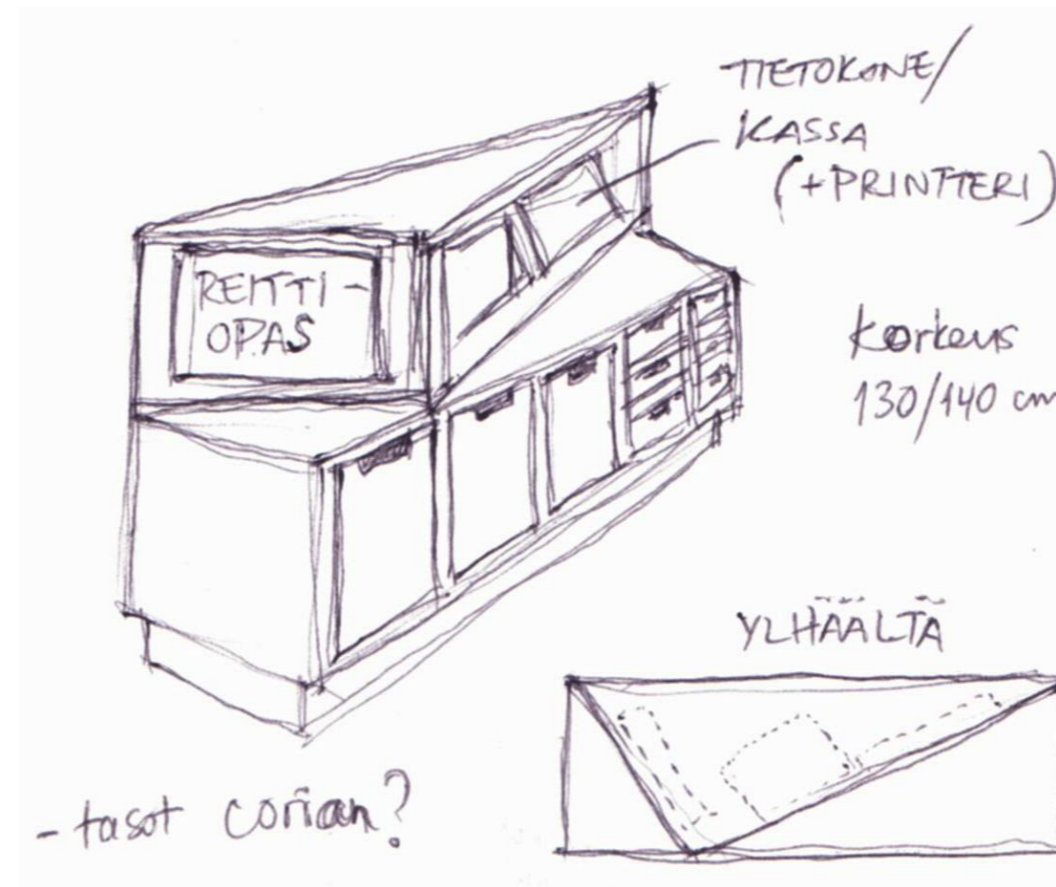 TIETOKONE/
KASSA
(+PRINTTERI)
REITTI-
OPAS
Korkeus
130/140 cm
YLHÄÄLTÄ
- tasot corian?